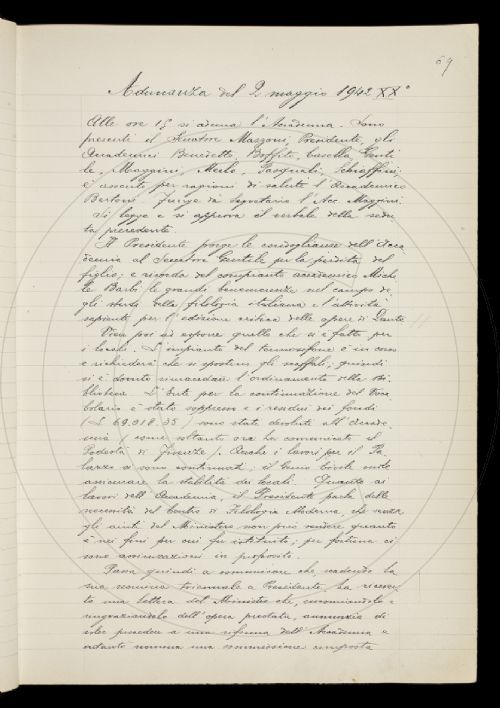 69
Adunanza del 2 maggio 1942 XX°
Alle ore 15 si aduna l'Accademia. Sono
presenti il Senatore Mazzoni, Presidente, gli
Accademici Benedetto, Boffito, Casella, Genti
le, Maggini, Merlo, Pasquali, Schiaffini;
è assente per ragioni di salute l'Accademico
Bertoni. Funge da Segretario l'Acc. Maggini.
Si legge e si approva il verbale della sedu
ta precedente.
Il Presidente porge le condoglianze dell'Acca
demia al Senatore Gentile per la perdita del
figlio; e ricorda del compianto accademico Miche
le Barbi le grandi benemerenze nel campo de
gli studi della filologia italiana e l'attività
sapiente per l'edizione critica delle opere di Dante.
Passa poi ad esporre quello che si è fatto per
i locali. L'impianto del termosifone è in corso
e richiederà che si spostino gli scaffali; quindi
si è dovuto rimandare l'ordinamento della Bi
blioteca. L'Ente per la continuazione del Voca
bolario è stato soppresso e i residui dei fondi
(L. 69.018,35) sono stati devoluti all'Accade
mia (come soltanto ora ha comunicato il
Podestà di Firenze). Anche i lavori per il Pa
lazzo si sono continuati; il Genio Civile vuole
assicurare la stabilità dei locali. Quanto ai
lavori dell'Accademia, il Presidente parla delle
necessità del Centro di Filologia Moderna, che senza
gli aiuti del Ministero non può rendere quanto
è nei fini per cui fu istituito; per fortuna ci
sono assicurazioni in proposito.
Passa quindi a comunicare che, scadendo la
sua nomina triennale a Presidente, ha ricevu
to una lettera del Ministro che, encomiandolo e
ringraziandolo dell'opera prestata, annunzia di
voler procedere a una riforma dell'Accademia e
intanto nomina una commissione composta